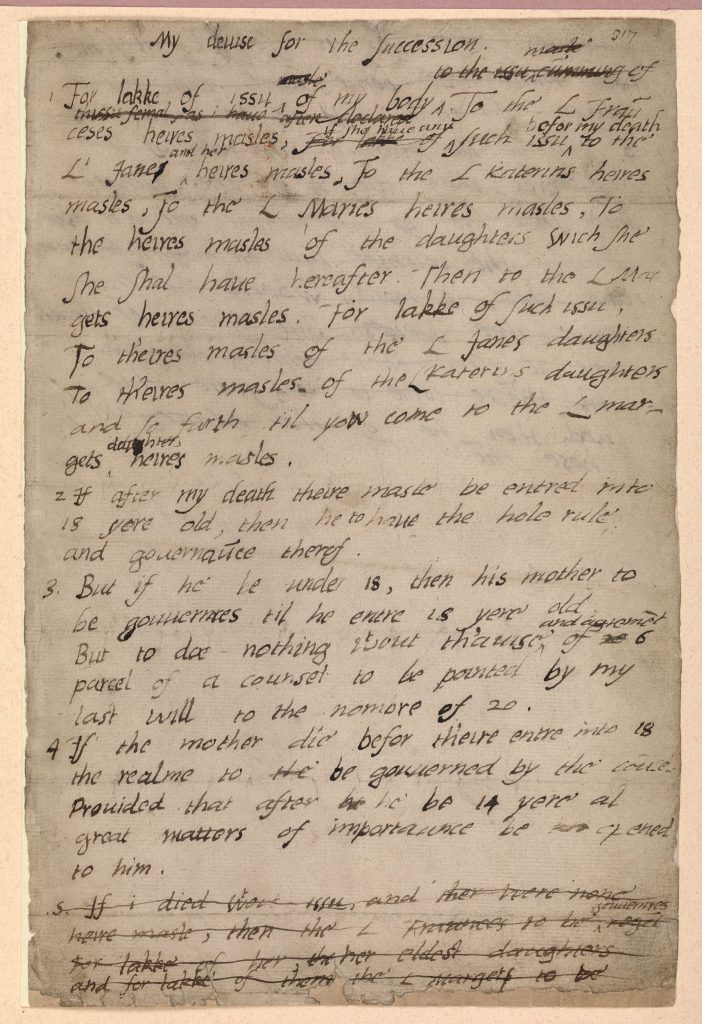 317
My deuise for the succession.
1 For lakke of issu masle of my body to the issu masle cumming of
thissu femal, as i haue after declared. To the L Frau
ceses heires masles, For lakke of if she haue any such issu befor my death to the
L' Janes and her heires masles, To the L Katerins heires
masles, To the L Maries heires masles, To
the heires masles of the daughters wich she
she shal haue hereafter. Then to the L Mar
gets heires masles. For lakke of such issu,
To theires masles of the L Janes daughters
To theires masles of the L Katerins daughters
and so furth til yow come to the L mar-
gets daughters heires masles.
2 If after my death theire masle be entred into
18 yere old, then he to haue the hole rule
and gouernauce therof.
3. But if he be under 18, then his mother to
be gouuernres til he entre 18 yere old
But to doe nothing wout thauise and agremet of 6
parcel of a counsel to be pointed by my
last will to the nombre of 20.
4 If the mother die befor theire entre into 18
the realme to be gouuerned by the cousel
Prouided that after he be 14 yere al
great matters of importaunce be opened
to him.
5. If i died wout issu, and ther were none
heire masle, then the L Fraunces to be gouuernres regēt
For lakke of her, the her eldest daughters
and for lakke of them the L Margets to be